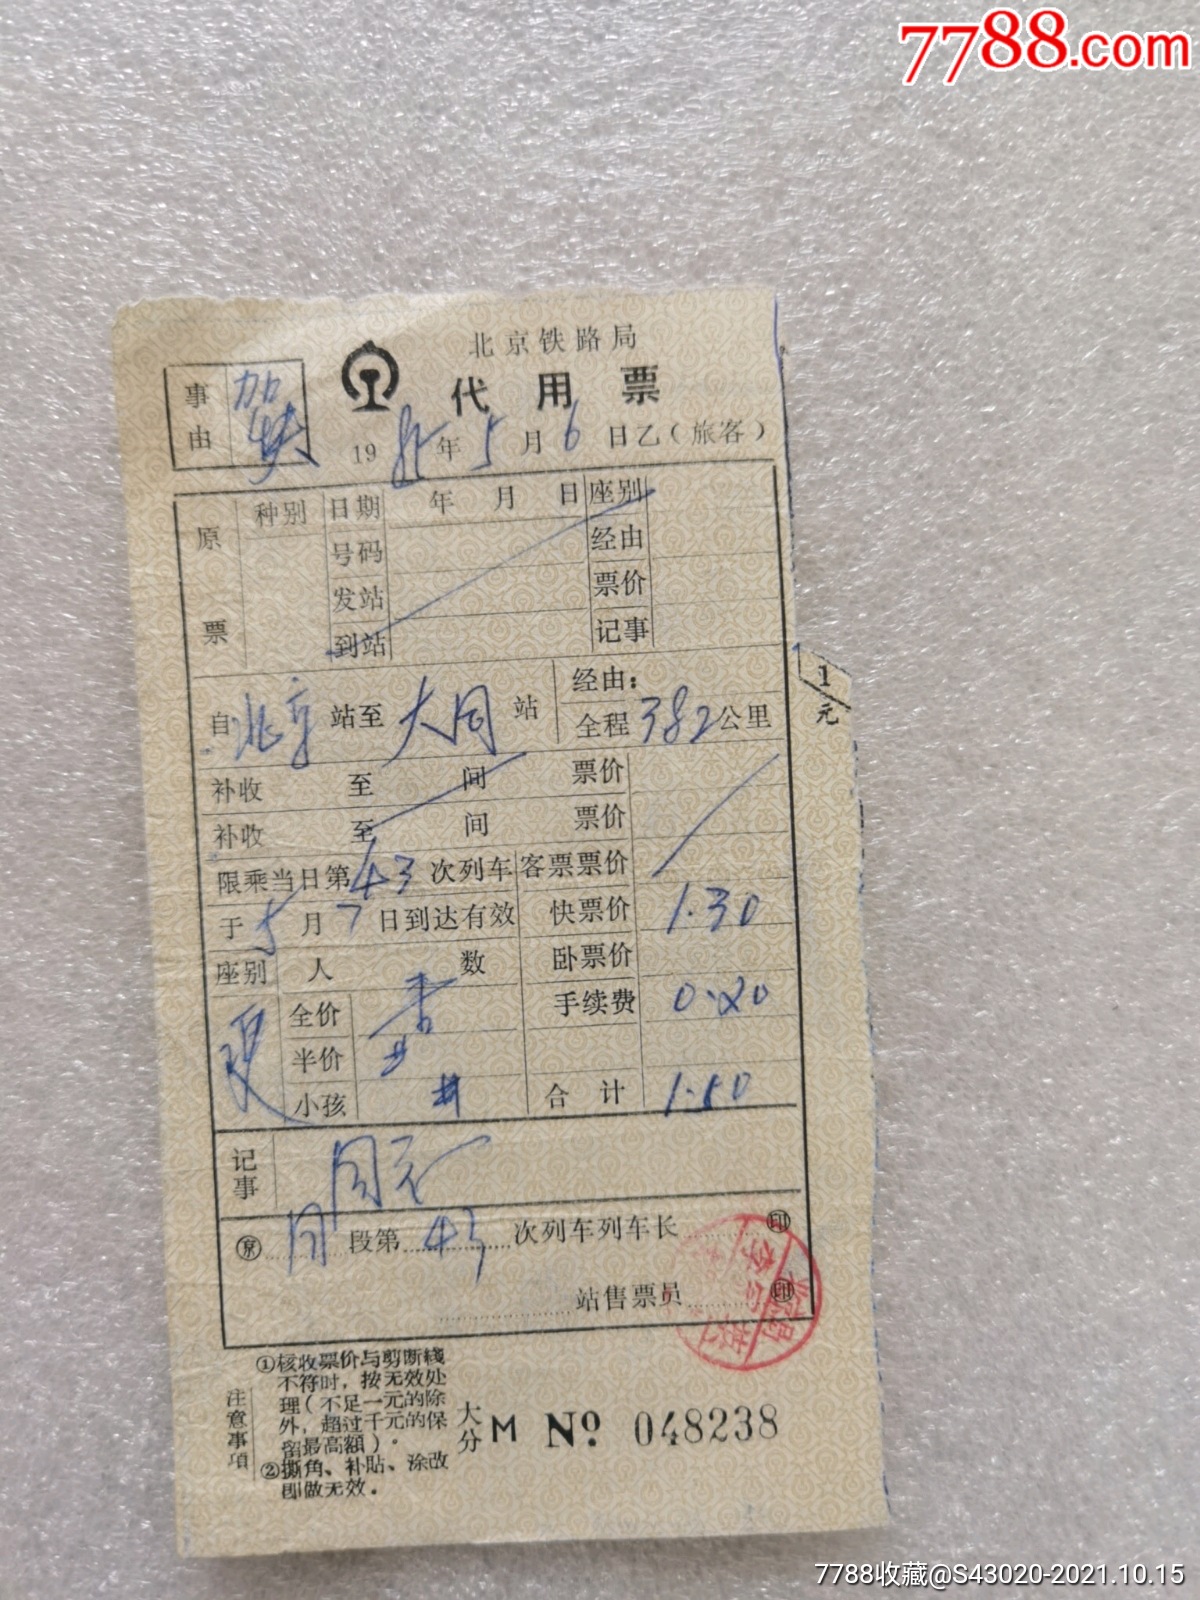 7788.com
北京铁路局
事由 加快
代用票
1985年5月6日乙(旅客)
原票 种别 日期 年 月 日 座别
号码 经由
发站 票价
到站 记事
自北京站至大同站 经由:
全程382公里
1元
补收 至 间 票价
补收 至 间 票价
限乘当日第43次列车 客票票价
于5月7日到达有效 快票价 1.30
座别 人数 卧票价
硬 全价 手续费 0.20
半价 #
小孩 # 合计 1.50
记事
京 同 段第43次列车列车长 印
站售票员 印
注意事项
①核收票价与剪断线
不符时,按无效处
理(不足一元的除
外,超过千元的保
留最高额)。
②撕角、补贴、涂改
即做无效。
大分 M No 048238
7788收藏@S43020-2021.10.15